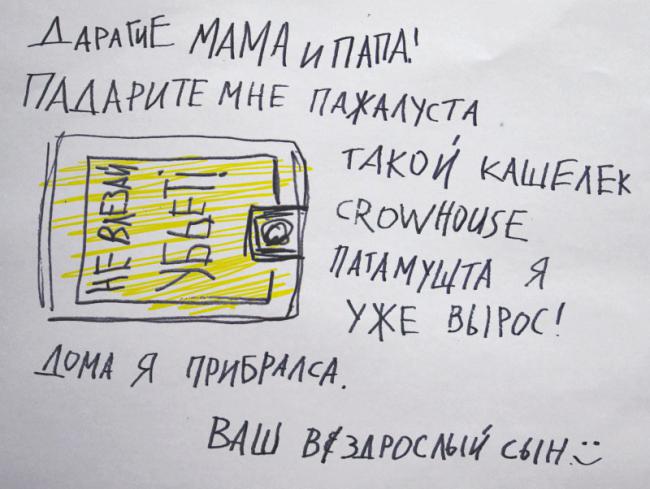 ДАРАГИЕ МАМА И ПАПА!
ПАДАРИТЕ МНЕ ПАЖАЛУСТА
ТАКОЙ КАШЕЛЕК
CROWHOUSE
ПАТАМУШТА Я
УЖЕ ВЫРОС!
НЕ ВЛЕЗАЙ
УБЬЕТ!
ДОМА Я ПРИБРАЛСА.
ВАШ ВЗДРОСЛЫЙ СЫН :)